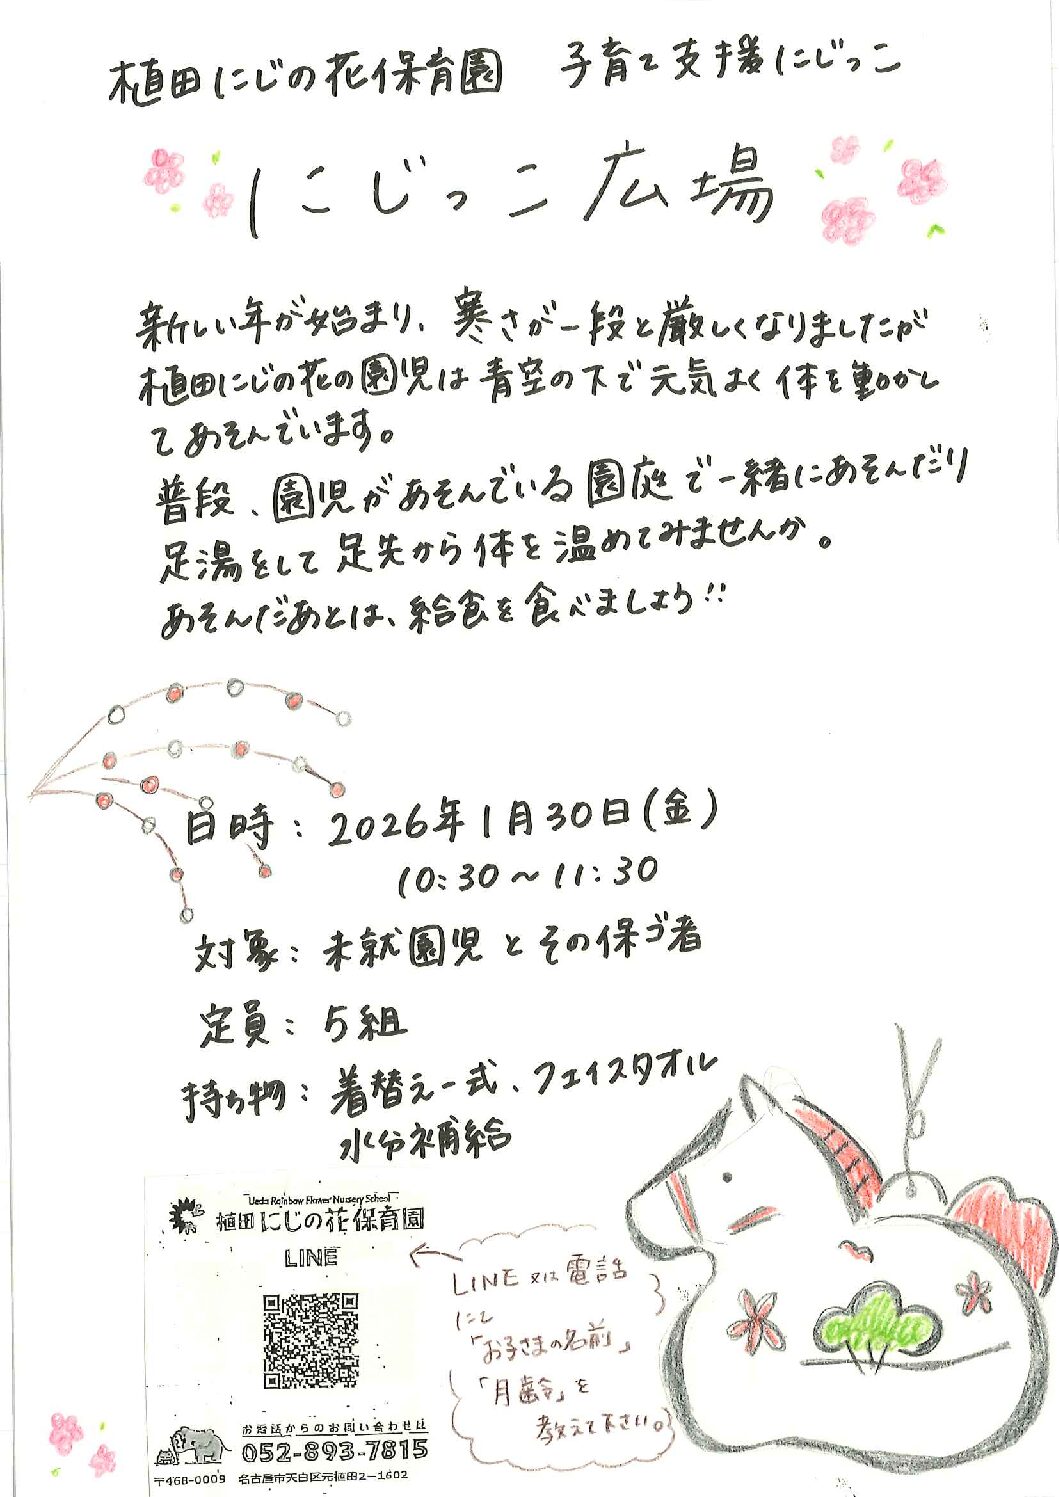 植田にじの花保育園 子育て支援にじっこ
にじっこ広場
新しい年が始まり、寒さが一段と厳しくなりましたが
植田にじの花の園児は青空の下で元気よく体を動かし
てあそんでいます。
普段、園児があそんでいる園庭で一緒にあそんだり
足湯をして足先から体を温めてみませんか。
あそんだあとは、給食を食べましょう!!
日時:2026年1月30日(金)
10:30~11:30
対象:未就園児とその保ゴ者
定員:5組
持ち物:着替え一式、フェイスタオル
水分補給
Ueda Rainbow Flower Nursery School
植田にじの花保育園
LINE
LINE又は電話
にて
「お子さまの名前」
「月齢」を
教えて下さい。
お電話からのお問い合わせは
052-893-7815
〒468-0009 名古屋市天白区元植田2-1602